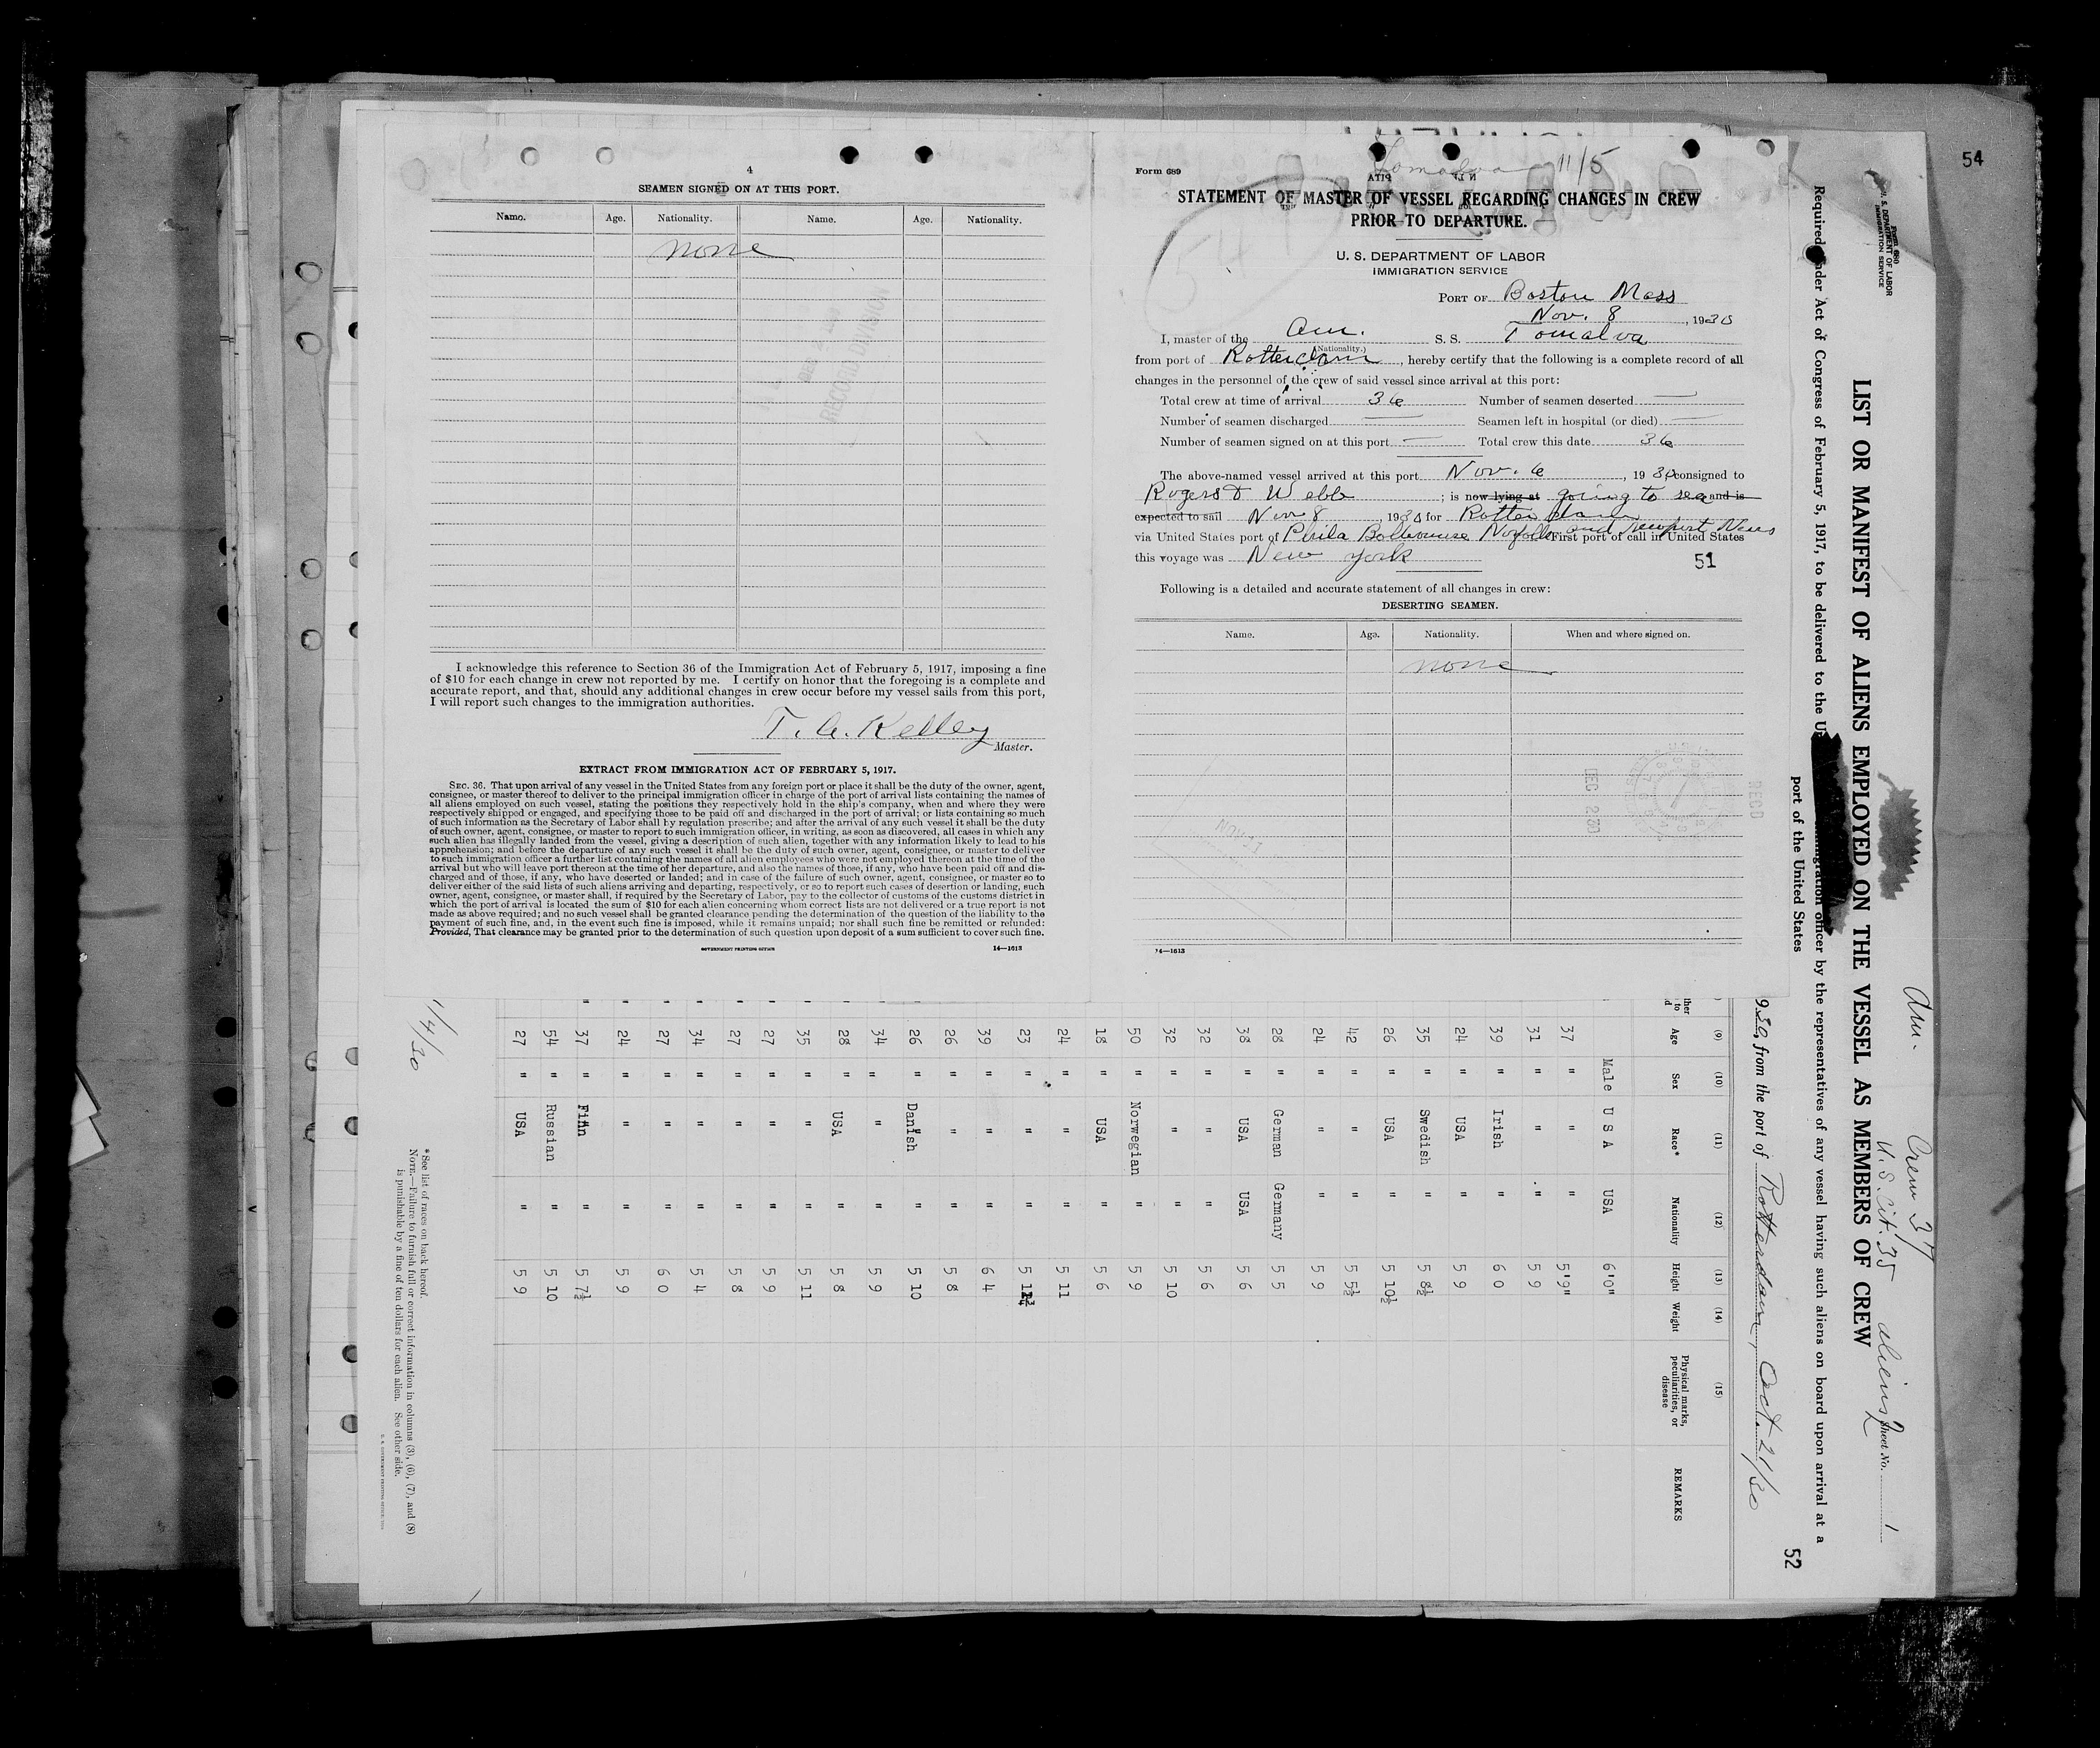 54
4
SEAMEN SIGNED ON AT THIS PORT.
Name. Age. Nationality. Name. Age. Nationality.
none
I acknowledge this reference to Section 36 of the Immigration Act of February 5, 1917, imposing a fine
of $10 for each change in crew not reported by me. I certify on honor that the foregoing is a complete and
accurate report, and that, should any additional changes in crew occur before my vessel sails from this port,
I will report such changes to the immigration authorities.
T. A. Kelley
Master.
EXTRACT FROM IMMIGRATION ACT OF FEBRUARY 5, 1917.
SEC. 36. That upon arrival of any vessel in the United States from any foreign port or place it shall be the duty of the owner, agent,
consignee, or master thereof to deliver to the principal immigration officer in charge of the port of arrival lists containing the names of
all aliens employed on such vessel, stating the positions they respectively hold in the ship's company, when and where they were
respectively shipped or engaged, and specifying those to be paid off and discharged in the port of arrival; or lists containing so much
of such information as the Secretary of Labor shall by regulation prescribe; and after the arrival of any such vessel it shall be the duty
of such owner, agent, consignee, or master to report to such immigration officer, in writing, as soon as discovered, all cases in which any
such alien has illegally landed from the vessel, giving a description of such alien, together with any information likely to lead to his
apprehension; and before the departure of any such vessel it shall be the duty of such owner, agent, consignee, or master to deliver
to such immigration officer a further list containing the names of all alien employees who were not employed thereon at the time of the
arrival but who will leave port thereon at the time of her departure, and also the names of those, if any, who have been paid off and dis-
charged and of those, if any, who have deserted or landed; and in case of the failure of such owner, agent, consignee, or master so to
deliver either of the said lists of such aliens arriving and departing, respectively, or so to report such cases of desertion or landing, such
owner, agent, consignee, or master shall, if required by the Secretary of Labor, pay to the collector of customs of the customs district in
which the port of arrival is located the sum of $10 for each alien concerning whom correct lists are not delivered or a true report is not
made as above required; and no such vessel shall be granted clearance pending the determination of the question of the liability to the
payment of such fine, and, in the event such fine is imposed, while it remains unpaid; nor shall such fine be remitted or refunded:
Provided, That clearance may be granted prior to the determination of such question upon deposit of a sum sufficient to cover such fine.
GOVERNMENT PRINTING OFFICE 14—1613
Form 689 Tomalva 11/5
STATEMENT OF MASTER OF VESSEL REGARDING CHANGES IN CREW
PRIOR TO DEPARTURE.
U. S. DEPARTMENT OF LABOR
IMMIGRATION SERVICE
PORT OF Boston Mass
Nov. 8, 1930
I, master of the Am. S. S. Tomalva
(Nationality.)
from port of Rotterdam, hereby certify that the following is a complete record of all
changes in the personnel of the crew of said vessel since arrival at this port:
Total crew at time of arrival 36 Number of seamen deserted —
Number of seamen discharged — Seamen left in hospital (or died) —
Number of seamen signed on at this port — Total crew this date 36
The above-named vessel arrived at this port Nov. 6, 1930 consigned to
Rogers & Webb; is now lying at going to sea and is
expected to sail Nov 8 1930 for Rotterdam
via United States port of Phila Baltimore Norfolk and Newport News First port of call in United States
this voyage was New York
51
Following is a detailed and accurate statement of all changes in crew:
DESERTING SEAMEN.
Name. Age. Nationality. When and where signed on.
none
DEC 2 30
RECD
14—1613
Form 680
U. S. DEPARTMENT OF LABOR
IMMIGRATION SERVICE
Am. Crew 37
U.S. Cit. 35 aliens 2
Sheet No. 1
LIST OR MANIFEST OF ALIENS EMPLOYED ON THE VESSEL AS MEMBERS OF CREW
Required under Act of Congress of February 5, 1917, to be delivered to the immigration officer by the representatives of any vessel having such aliens on board upon arrival at a
port of the United States
52
930, from the port of Rotterdam, Oct. 21/30
(9) (10) (11) (12) (13) (14) (15)
Age Sex Race* Nationality Height Weight Physical marks, peculiarities, or disease REMARKS
Male U S A USA 6'0"
37 " " " 5'9"
31 " " " 5 9
39 " Irish " 6 0
24 " USA " 5 9
35 " Swedish " 5 8½
26 " USA " 5 10½
42 " " " 5 5½
24 " " " 5 9
28 " German Germany 5 5
38 " USA USA 5 6
32 " " " 5 6
32 " " " 5 10
50 " Norwegian " 5 9
18 " USA " 5 6
24 " " " 5 11
23 " " " 5
39 " " " 6 4
26 " " " 5 8
26 " Danish " 5 10
34 " " " 5 9
28 " USA " 5 8
35 " " " 5 11
27 " " " 5 9
27 " " " 5 8
34 " " " 5 4
27 " " " 6 0
24 " " " 5 9
37 " Finn " 5 7½
54 " Russian " 5 10
27 " USA " 5 9
11/4/30
*See list of races on back hereof.
NOTE.—Failure to furnish full or correct information in columns (3), (6), (7), and (8)
is punishable by a fine of ten dollars for each alien. See other side.